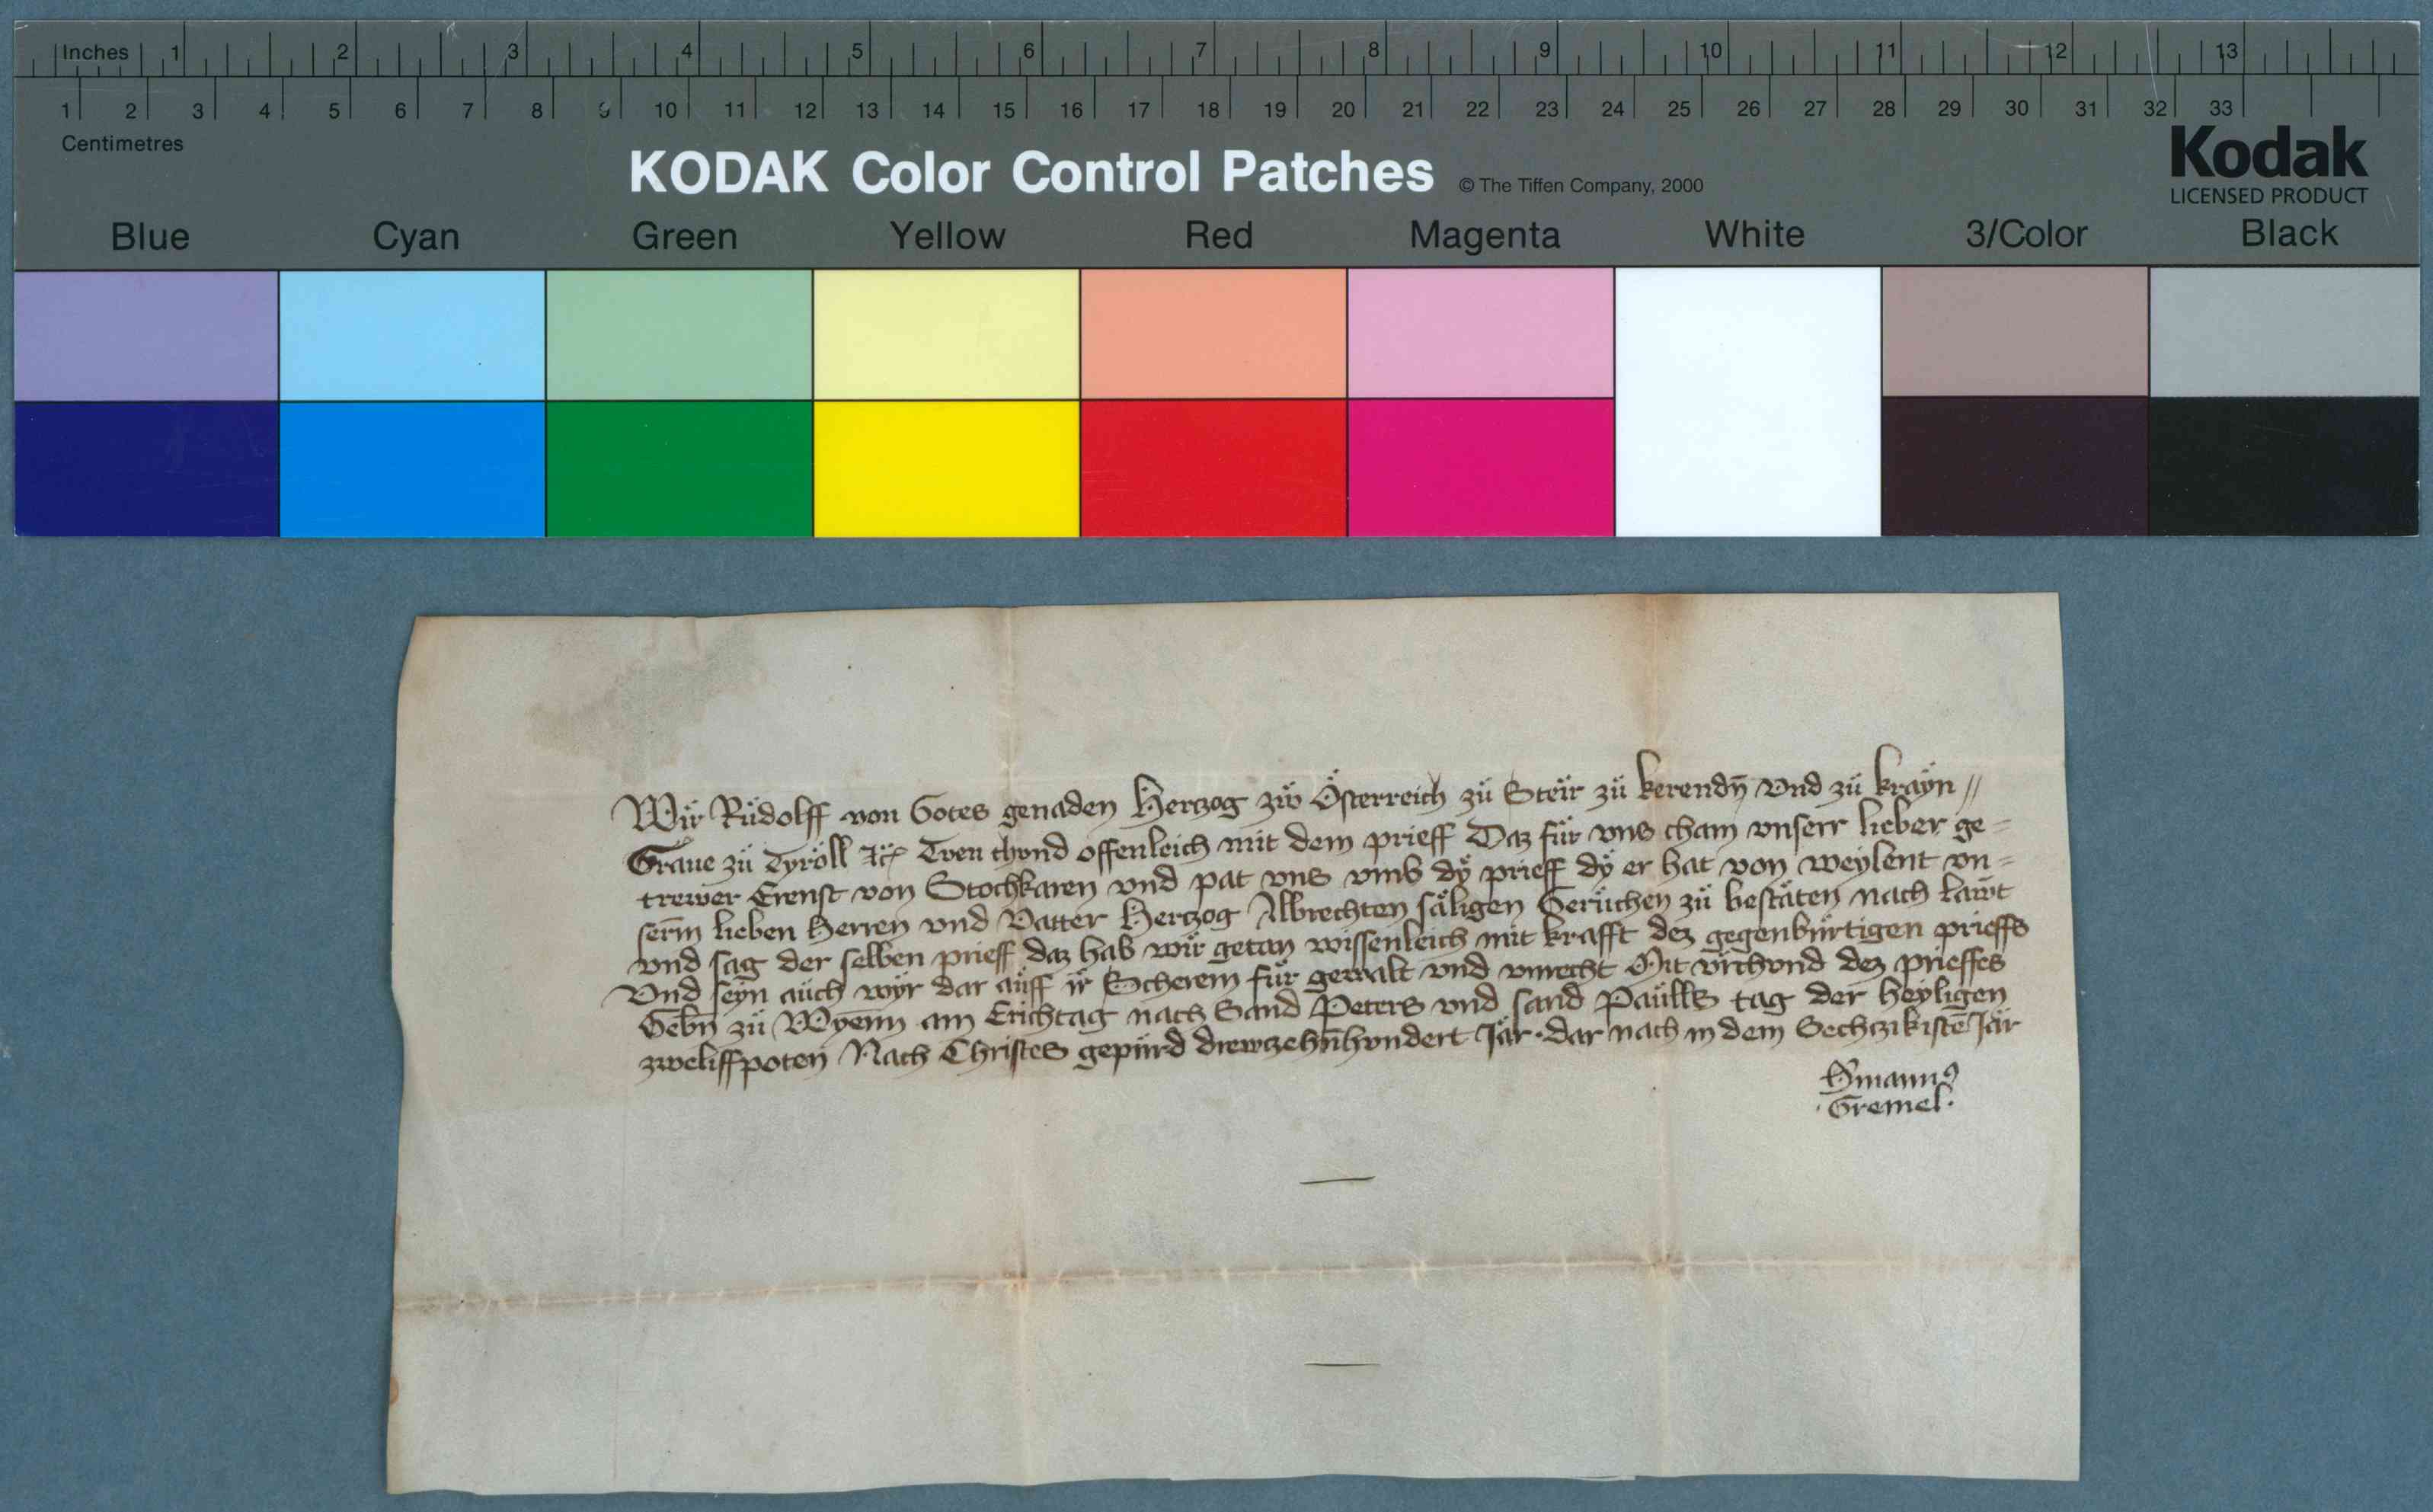 Inches 1 2 3 4 5 6 7 8 9 10 11 12 13
1 2 3 4 5 6 7 8 9 10 11 12 13 14 15 16 17 18 19 20 21 22 23 24 25 26 27 28 29 30 31 32 33
Centimetres
KODAK Color Control Patches © The Tiffen Company, 2000
Kodak
LICENSED PRODUCT
Blue Cyan Green Yellow Red Magenta White 3/Color Black
Wir Rüdolff von Gotes genaden Hertzog zw Österreich zü Steir zü kerendn̄ vnd zü kraÿn //
Graue zü Tyröll Tven chvnd offenleich mit dem prieff Daz für vns cham vnserr lieber ge=
trewer Erenst von Stochkaren vnd pat vns vmb dÿ prieff dÿ er hat von weylent vn=
serm̄ lieben Herren vnd Vatter Hertzog Albrechten säligen Gerüchen zü bestäten nach lawt
vnd sag der selben prieff daz hab wir getan wissenleich mit krafft dez gegenbürtigen prieffs
Vnd seyn aüch wÿr dar aüff ir Scherem für gewalt vnd vnrecht Mit vrchvnd dez prieffes
Gebn̄ zü Wyenn̄ am Erichtag nach Sand Peters vnd sand Paülls tag der heyligen
zweliffpoten Nach Christes gepürd drewzehn̄hvndert Jär · dar nach in dem Sechczikistē Jär
Gremel ·